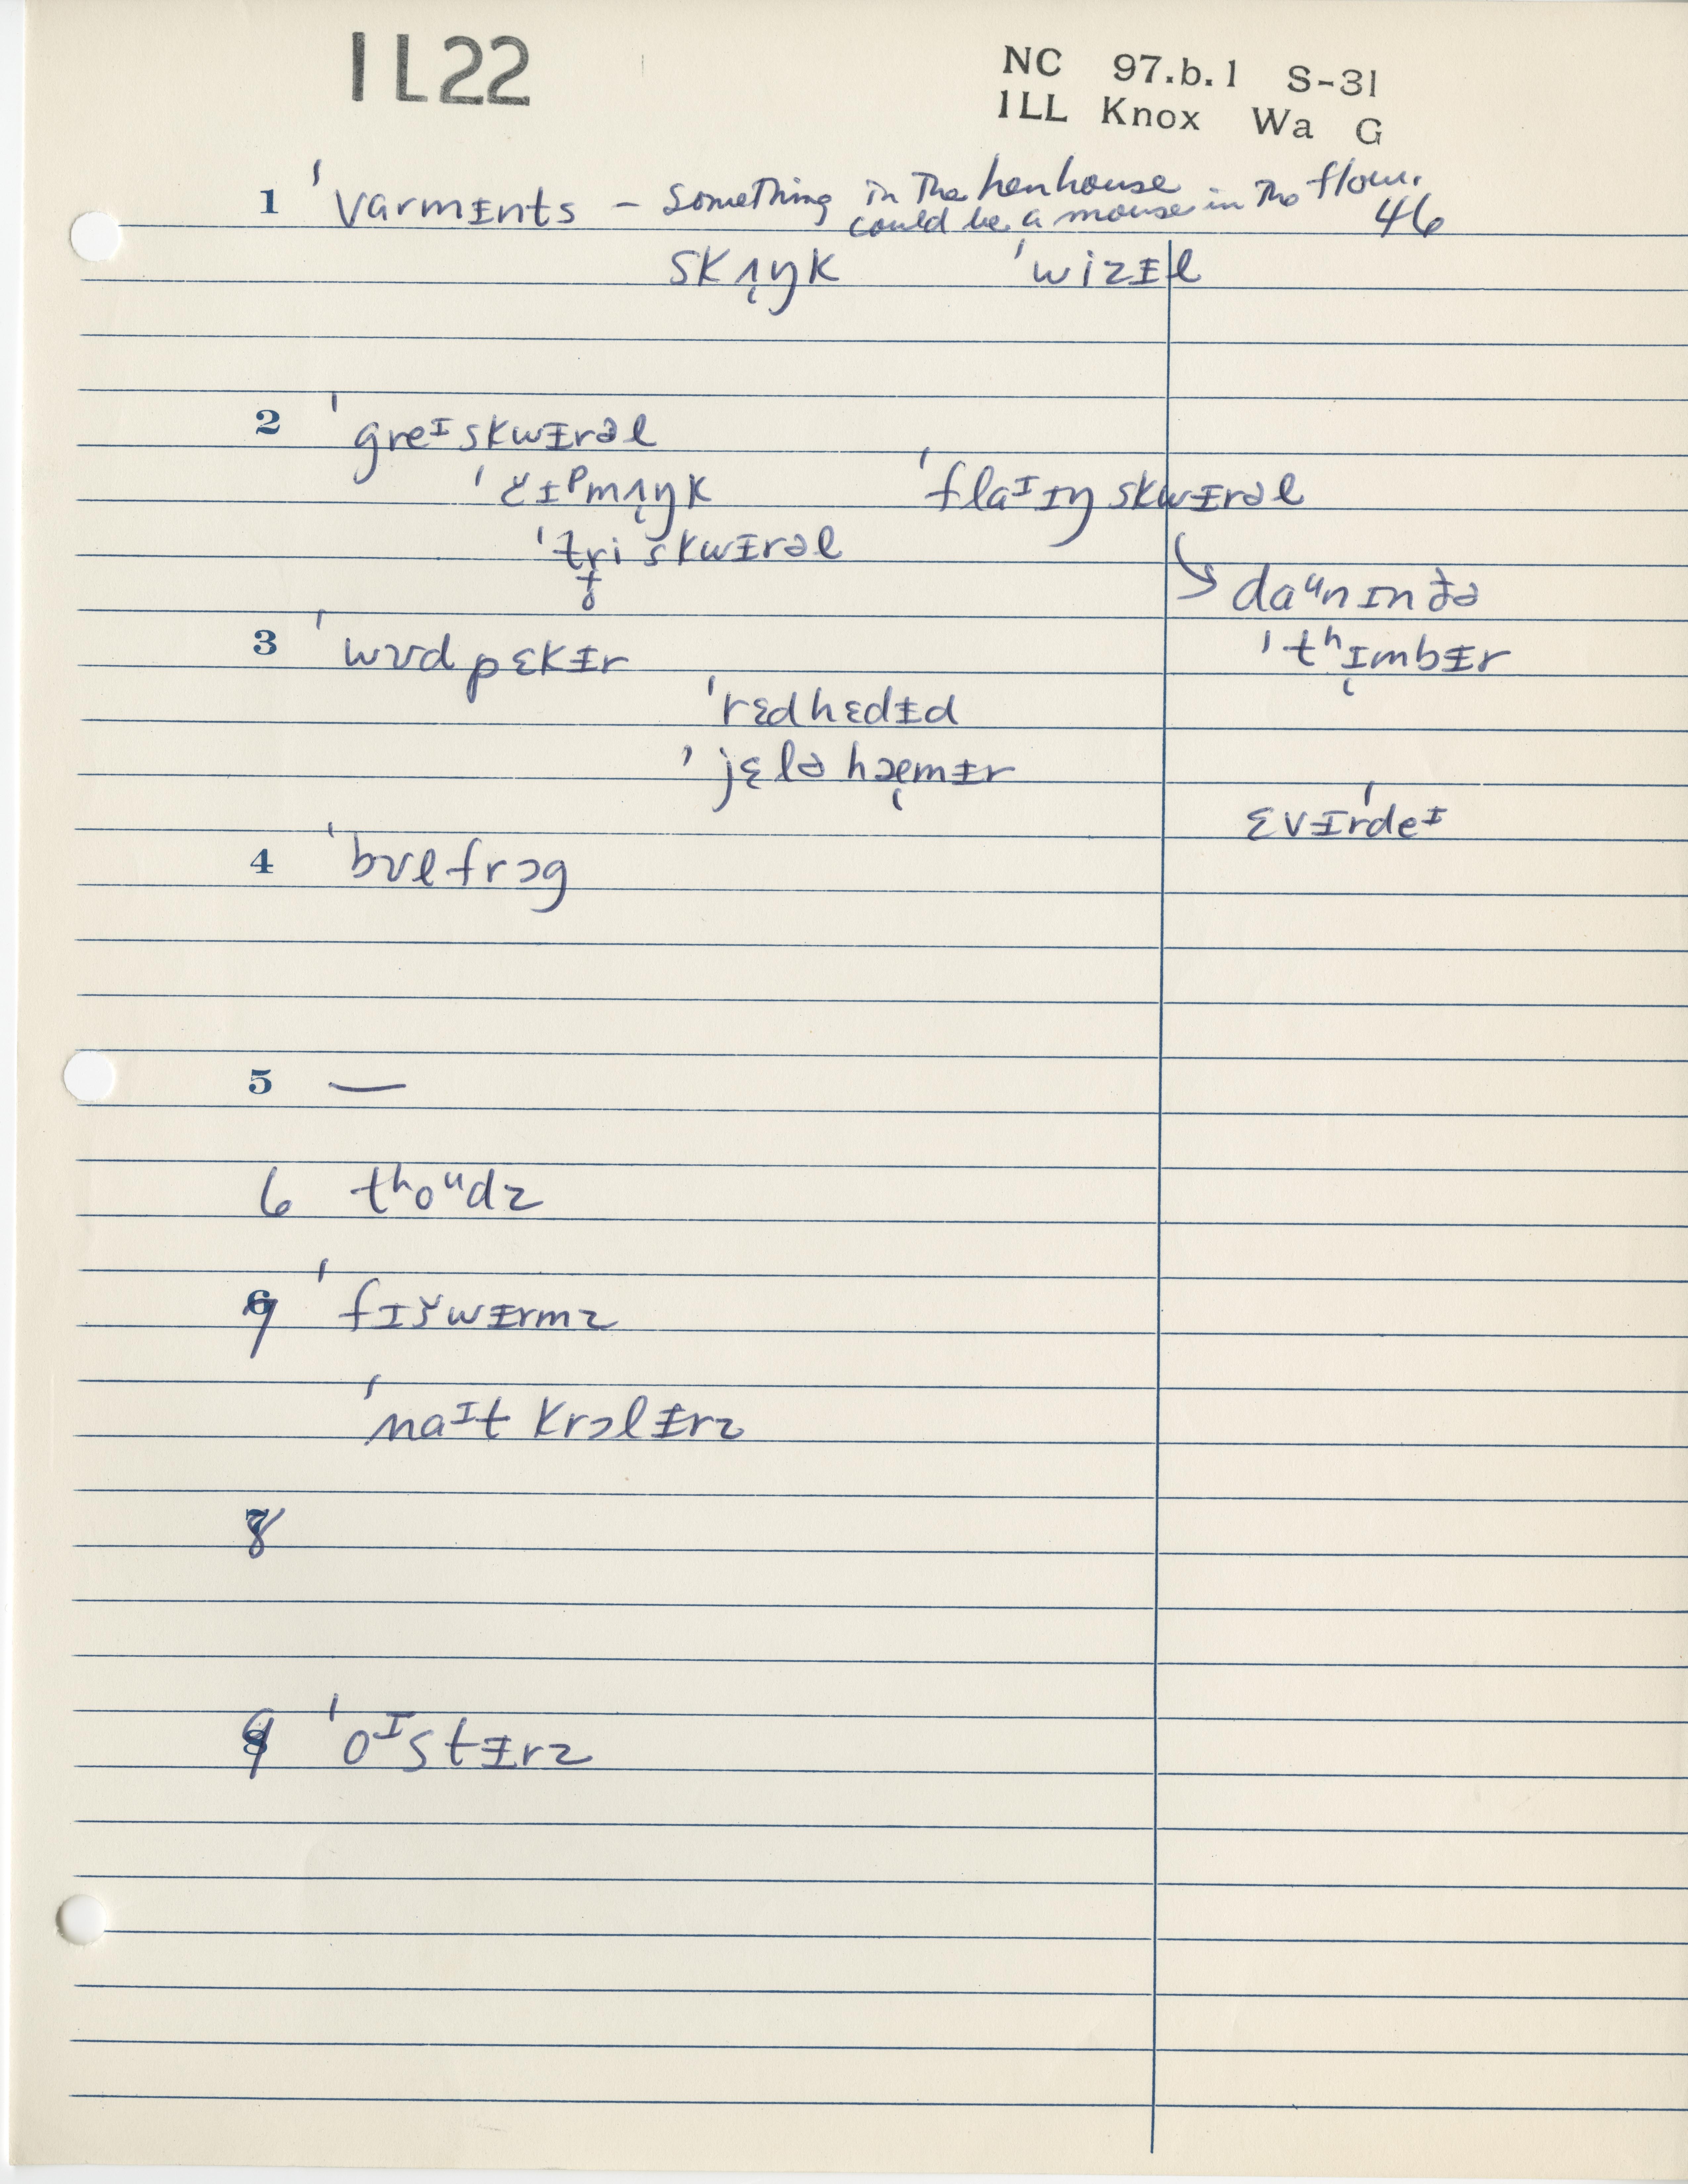 1L22
NC 97.b.1 S-31
1LL Knox Wa G
1 ˈvarmᵻnts – Something in the henhouse
could be a mouse in the flour.
46
skʌ̨ŋk ˈwizᵻl
2 ˈgreᶦskwᵻrəl
ˈčɪᵖmʌ̨ŋk ˈflaᶦɪŋskwᵻrəl
ˈtr̥i skwᵻrəl
daᵘn ɪn ðə
3 ˈwʊdpɛkᵻr ˈtʰɪ̨mbᵻr
ˈrɛdhɛdᵻd
ˈjɛləhæ̨mᵻr
ɛvᵻrˈdeᶦ
4 ˈbʊlfrɔg
5 —
6 tʰoᵘdz
7 ˈfɪšwᵻrmz
ˈnaᶦtkrɔlᵻrz
8
9 ˈoᶦstᵻrz